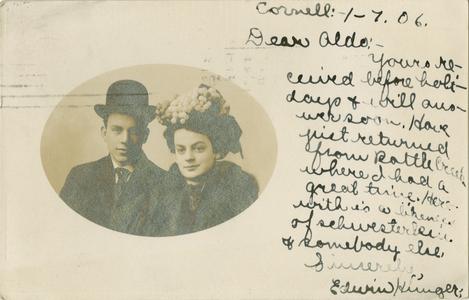 Cornell:-1-7.06.
Dear Aldo:-
Yours re-
ceived before holi-
days & will ans-
wer soon. Have
just returned
from Battle Creek
where I had a
great time. Here-
with is a likeness
of schwesterlein
& somebody else.
Sincerely,
Edwin